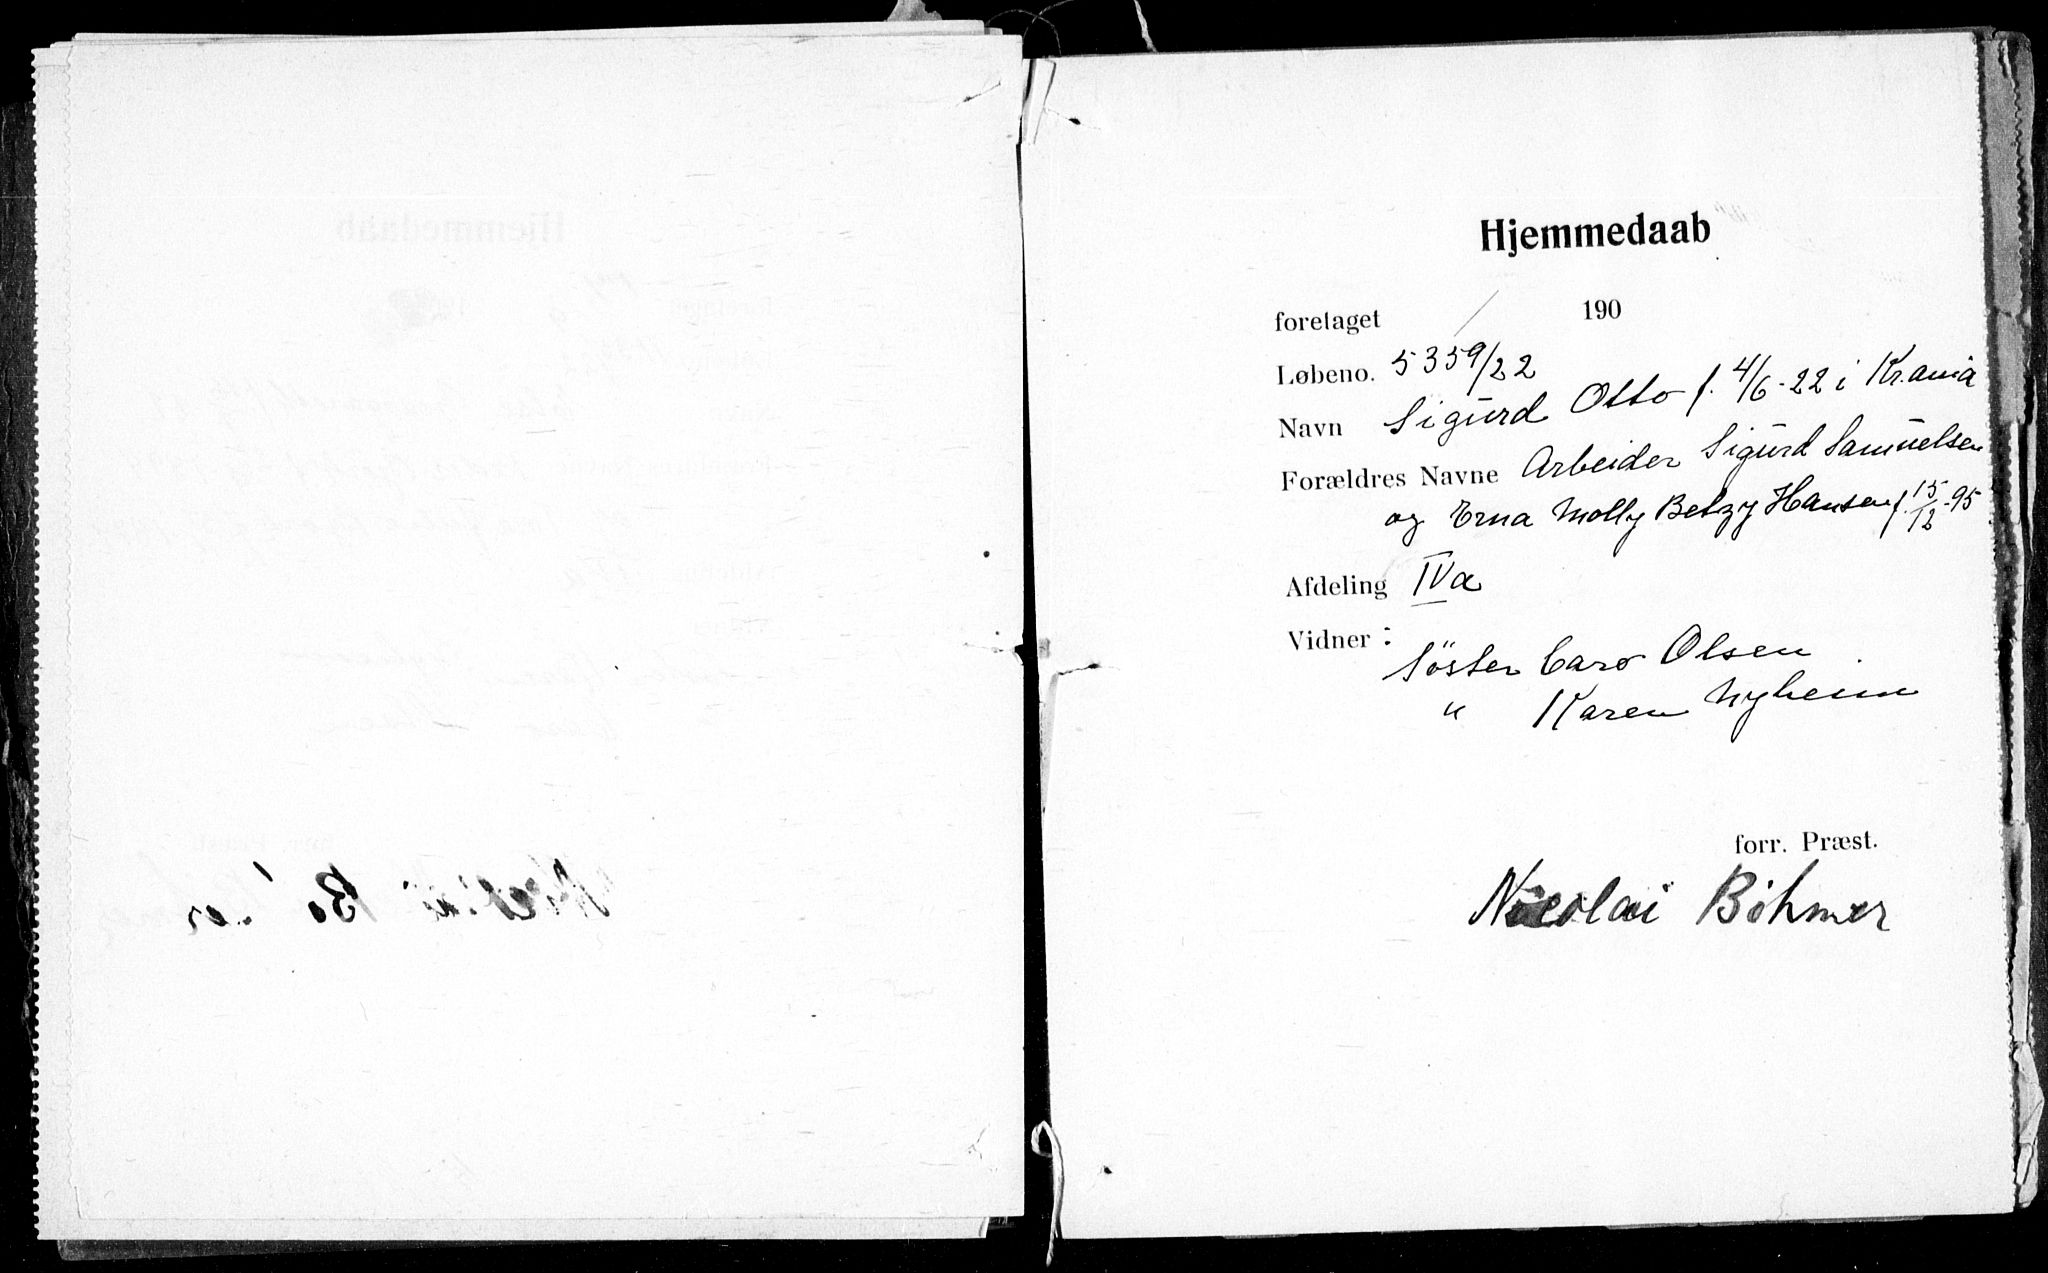 Hjemmedaab
foretaget / 190
Løbeno. 5359/22
Navn Sigurd Otto f. 4/6-22 i Kr.ania
Forældres Navne Arbeider Sigurd Samuelsen
og Erna Molly Betzy Hansen f. 15/12-95
Afdeling IVa
Vidner :
Söster Caro Olsen
" Karen Nyheim
forr. Præst.
Nicolai Böhmer